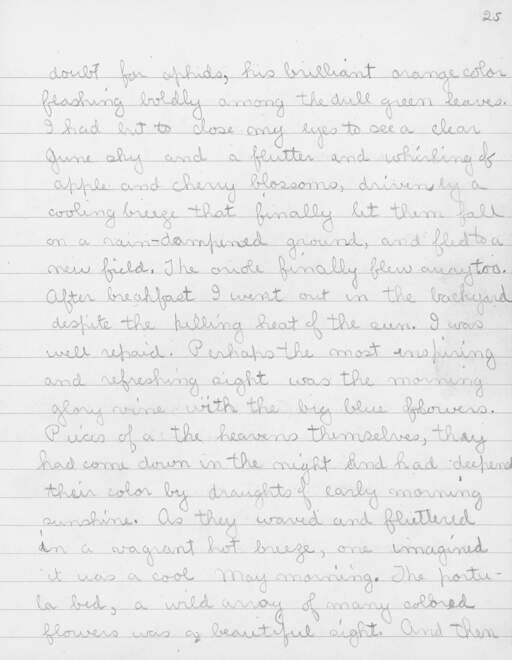 25
doubt for aphids, his brilliant orange color
flashing boldly among the dull green leaves.
I had but to close my eyes to see a clear
June sky and a flutter and whirling of
apple and cherry blossoms, driven by a
cooling breeze that finally let them fall
on a rain-dampened ground, and fled to a
new field. The oriole finally flew away too.
After breakfast I went out in the backyard
despite the killing heat of the sun. I was
well repaid. Perhaps the most inspiring
and refreshing sight was the morning
glory vine with the big blue flowers.
Pieces of a the heavens themselves, they
had come down in the night and had deepend
their color by draughts of early morning
sunshine. As they waved and fluttered
in a vagrant hot breeze, one imagined
it was a cool May morning. The portu-
la bed, a wild array of many colored
flowers was a beautiful sight. And then